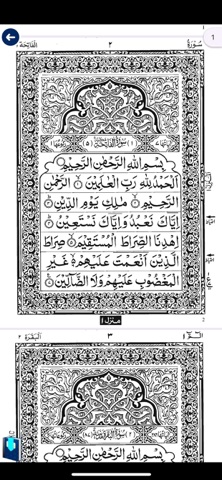 1
سُورَةُ ٢ اَلْفَاتِحَة
(١) سُوْرَةُ الْفَاتِحَةِ (٥)
بِسْمِ اللّٰهِ الرَّحْمٰنِ الرَّحِيْمِ
اَلْحَمْدُ لِلّٰهِ رَبِّ الْعٰلَمِيْنَ الرَّحْمٰنِ
الرَّحِيْمِ مٰلِكِ يَوْمِ الدِّيْنِ
اِيَّاكَ نَعْبُدُ وَاِيَّاكَ نَسْتَعِيْنُ
اِهْدِنَا الصِّرَاطَ الْمُسْتَقِيْمَ صِرَاطَ
الَّذِيْنَ اَنْعَمْتَ عَلَيْهِمْ غَيْرِ
الْمَغْضُوْبِ عَلَيْهِمْ وَلَا الضَّآلِّيْنَ
منزل ١
2
الٓمّٓ ١ ٣ اَلْبَقَرَة ٢
بِسْمِ اللّٰهِ الرَّحْمٰنِ الرَّحِيْمِ